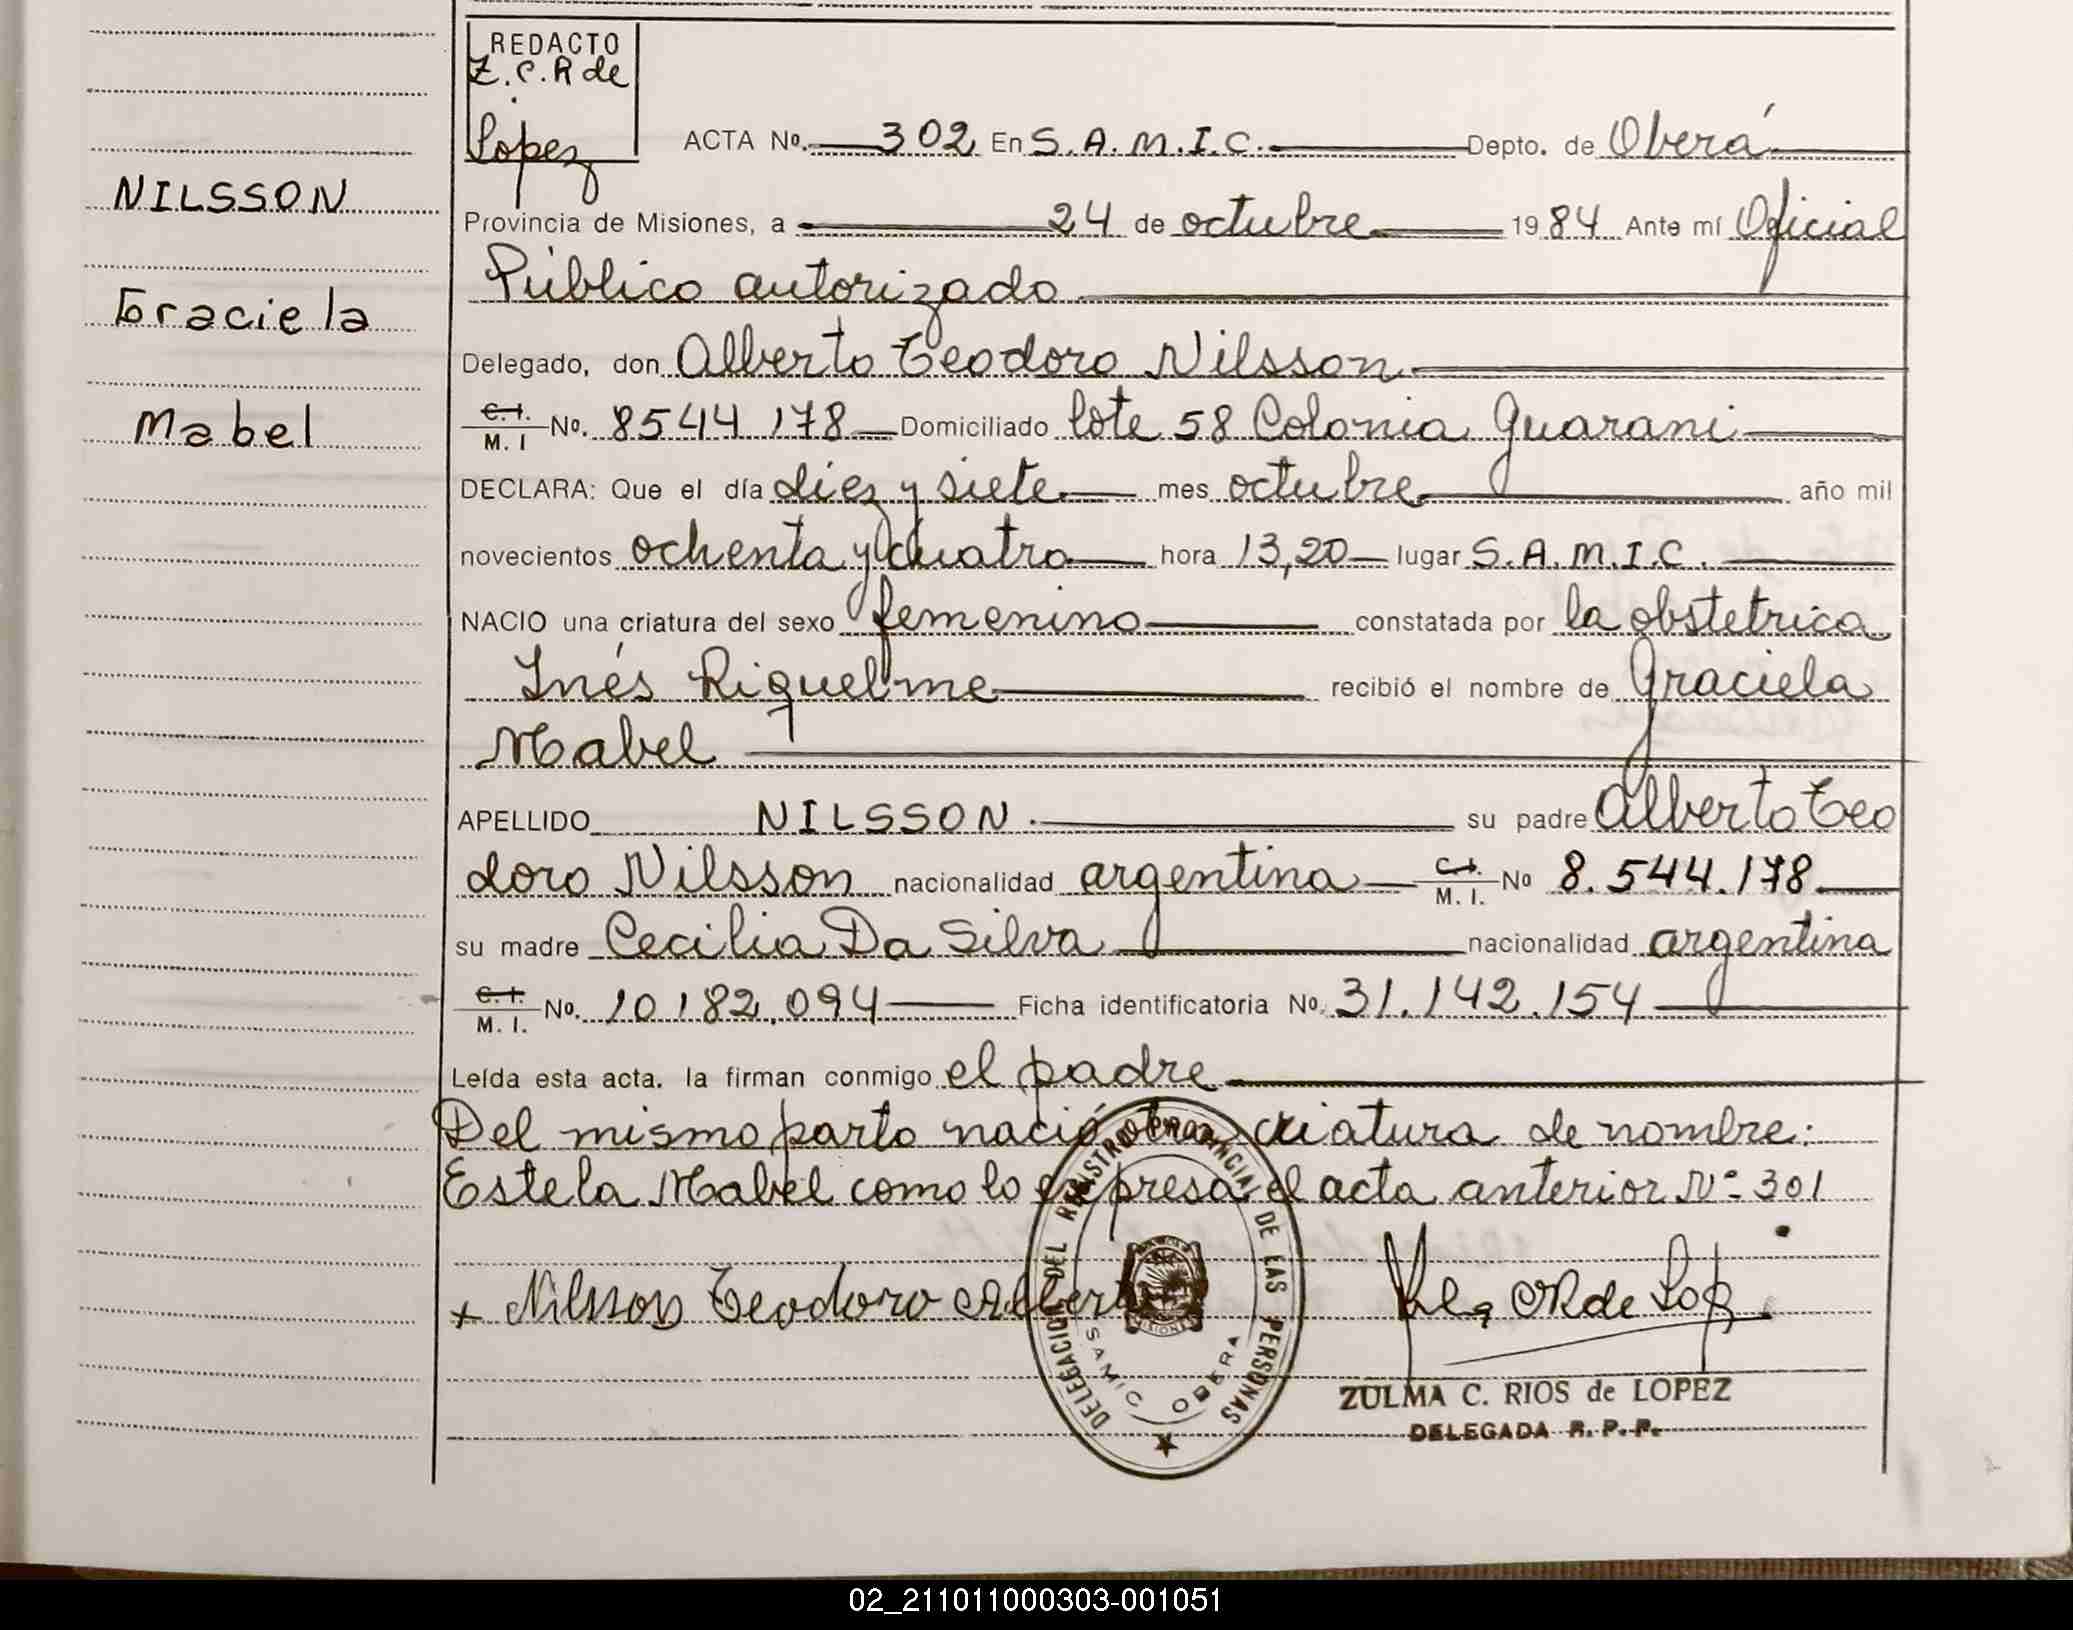 REDACTO
Z.C.R de
Lopez
NILSSON
Graciela
Mabel
ACTA No. 302 En S.A.M.I.C. Depto. de Oberá
Provincia de Misiones, a 24 de octubre 1984 Ante mí Oficial
Público autorizado
Delegado, don Alberto Teodoro Nilsson
C.I. M.I No. 8544178 Domiciliado lote 58 Colonia Guarani
DECLARA: Que el día diez y siete mes octubre año mil
novecientos ochenta y cuatro hora 13,20 lugar S.A.M.I.C.
NACIO una criatura del sexo femenino constatada por la obstetrica
Inés Riquelme recibió el nombre de Graciela
Mabel
APELLIDO NILSSON su padre Alberto Teo
doro Nilsson nacionalidad argentina C.I. M.I. No 8.544.178
su madre Cecilia Da Silva nacionalidad argentina
C.I. M.I. No. 10182.094 Ficha identificatoria No. 31.142.154
Leída esta acta. la firman conmigo el padre
Del mismo parto nació otra criatura de nombre:
Estela Mabel como lo expresa el acta anterior Nº 301
x Nilsson Teodoro Alberto
DELEGACION DEL REGISTRO PROVINCIAL DE LAS PERSONAS
MISIONES
SAMIC OBERA
ZULMA C. RIOS de LOPEZ
DELEGADA R.P.P.
02_211011000303-001051